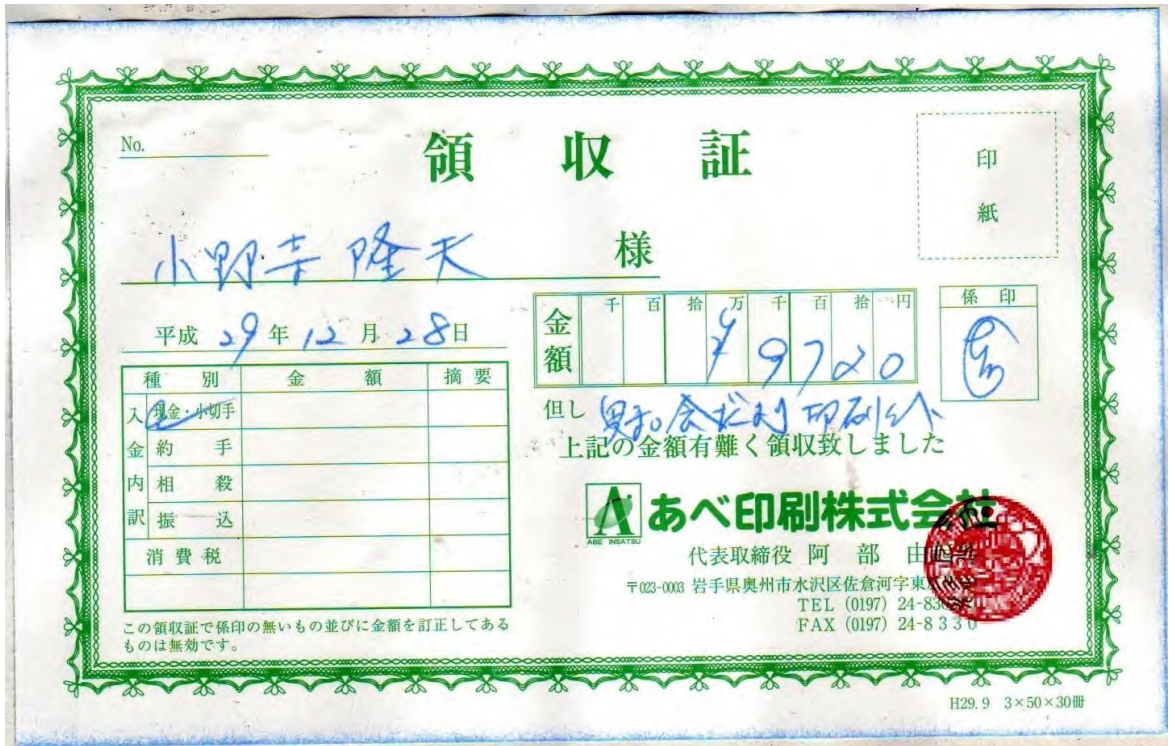 No.
領収証
印紙
小野寺 隆天 様
平成 29年 12月 28日
金額 千百拾万千百拾円
¥9720
係印
種別 金額 摘要
入金内訳
現金・小切手
約手
相殺
振込
消費税
但し 印刷
上記の金額有難く領収致しました
ABE INSATSU
あべ印刷株式会社
代表取締役 阿部 由
〒023-0003 岩手県奥州市水沢区佐倉河字東
TEL (0197) 24-83
FAX (0197) 24-8330
この領収証で係印の無いもの並びに金額を訂正してある
ものは無効です。
H29.9 3×50×30冊